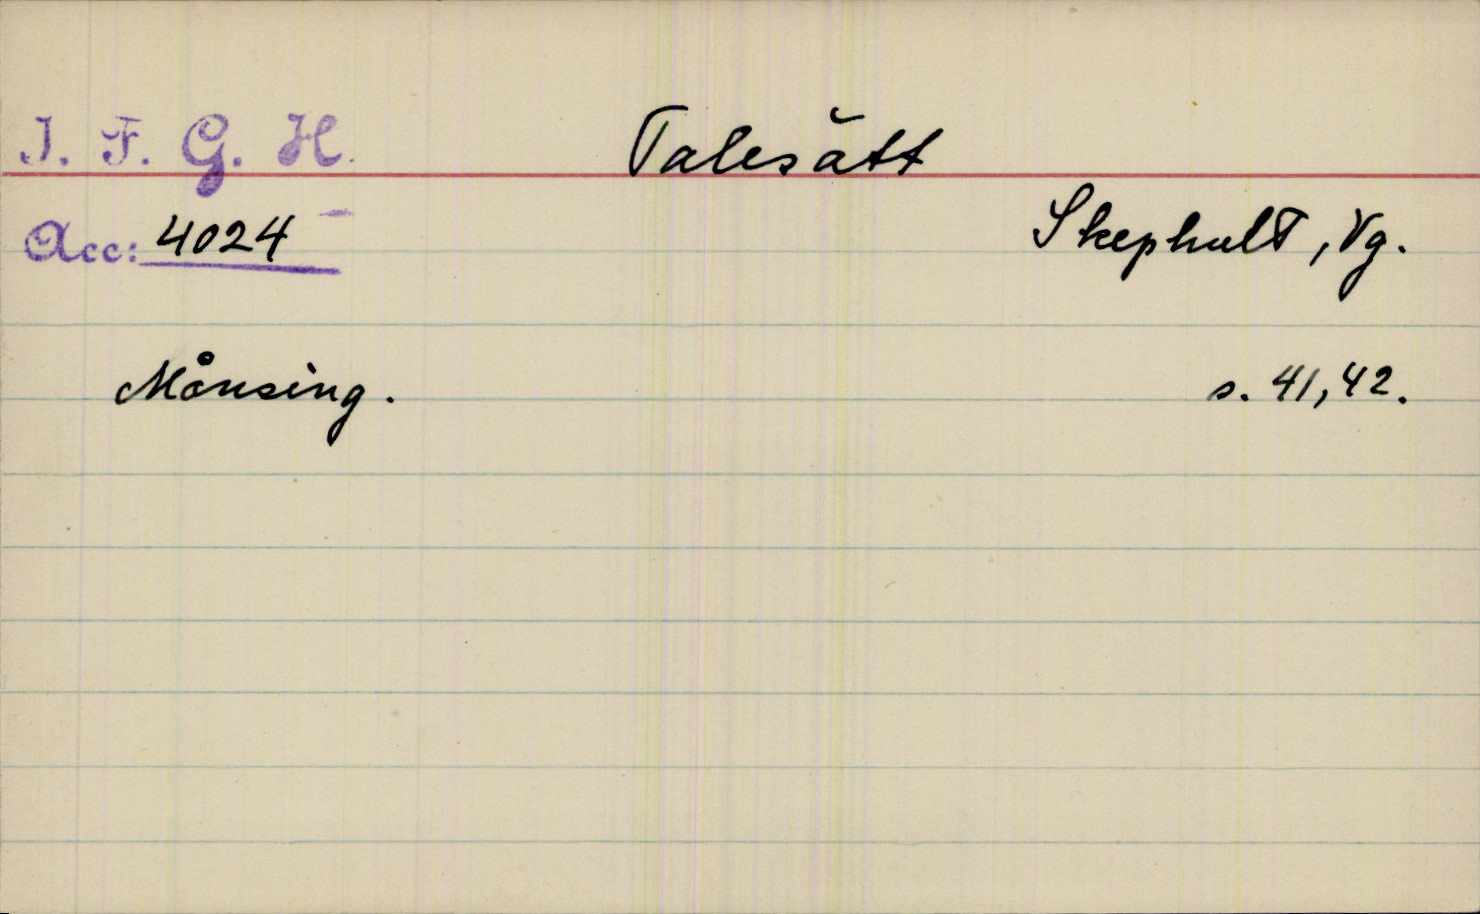 I. F. G. H.
Talesätt
Acc: 4024
Skephult, Vg.
Månsing.
s. 41, 42.